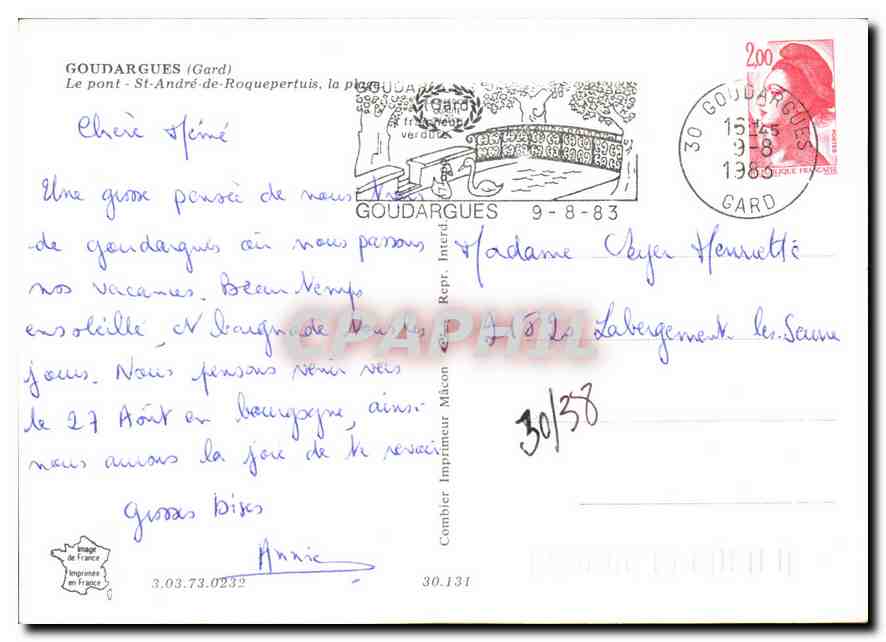 GOUDARGUES (Gard)
Le pont - St-André-de-Roquepertuis, la plage
Chère Mémé
Une grosse pensée de nous tous
de goudargues où nous passons
nos vacances. Beau temps
ensoleillé, et baignade tous les
jours. Nous pensons venir vers
le 27 Août en bourgogne, ainsi
nous aurons la joie de te revoir
Grosses Bises
Annie
Image
de France
Imprimée
en France
3.03.73.0232
30.131
Combier Imprimeur Mâcon Repr. Interd.
GOUDARGUES
Gard
fraîcheur
verdure
GOUDARGUES 9-8-83
2,00
POSTES
RÉPUBLIQUE FRANÇAISE
30 GOUDARGUES
16 H 45
9-8
1983
GARD
Madame Henriette
Labergement les Seurre
30/38
CPAPHIL